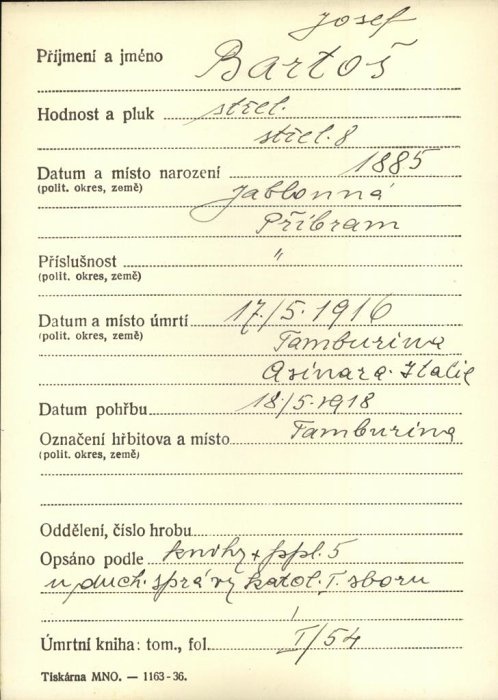 Josef
Příjmení a jméno Bartoš
Hodnost a pluk střel.
střel. 8
Datum a místo narození 1885
(polit. okres, země) Jablonná
Příbram
Příslušnost "
(polit. okres, země)
Datum a místo úmrtí 17./5. 1916
(polit. okres, země) Tamburina
Asinara. Italie
Datum pohřbu 18/5. 1918
Označení hřbitova a místo Tamburina
(polit. okres, země)
Oddělení, číslo hrobu
Opsáno podle knihy + ppl. 5
u duch. správy katol. I. sboru
Úmrtní kniha: tom., fol. I/54
Tiskárna MNO. — 1163-36.